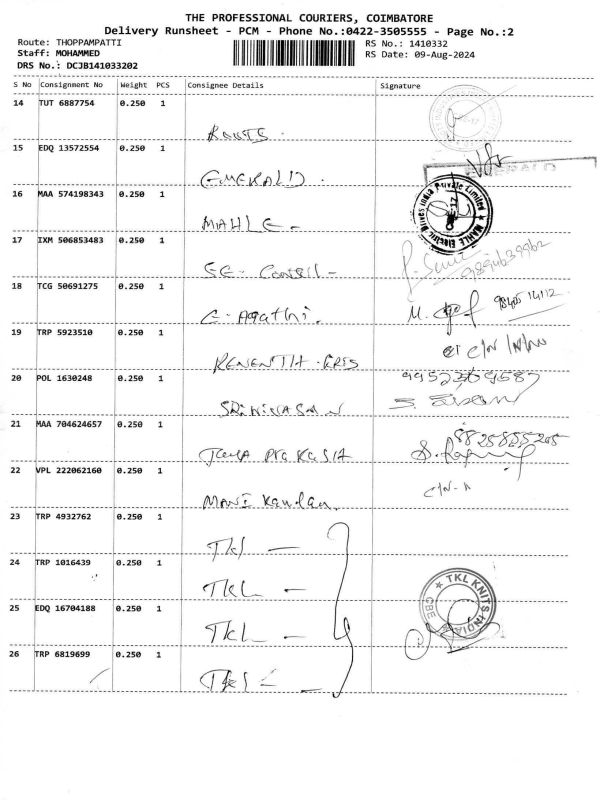 THE PROFESSIONAL COURIERS, COIMBATORE
Delivery Runsheet - PCM - Phone No.:0422-3505555 - Page No.:2
Route: THOPPAMPATTI
RS No.: 1410332
Staff: MOHAMMED
RS Date: 09-Aug-2024
DRS No.: DCJB141033202
S No Consignment No Weight PCS Consignee Details Signature
14 TUT 6887754 0.250 1
ROOTS.
15 EDQ 13572554 0.250 1
EMERALD.
16 MAA 574198343 0.250 1
MAHLE -
MAHLE Electric Drives India Private Limited
17 IXM 506853483 0.250 1
9894639962
18 TCG 50691275 0.250 1
M.
19 TRP 5923510 0.250 1
20 POL 1630248 0.250 1
SRINIVASAN
S.
21 MAA 704624657 0.250 1
8825855205
Jaya Prakash
S.
22 VPL 222062160 0.250 1
Mani Kandan.
23 TRP 4932762 0.250 1
TKL -
24 TRP 1016439 0.250 1
TKL -
TKL KNITS INDIA
CBE
25 EDQ 16704188 0.250 1
TKL -
26 TRP 6819699 0.250 1
TKL -